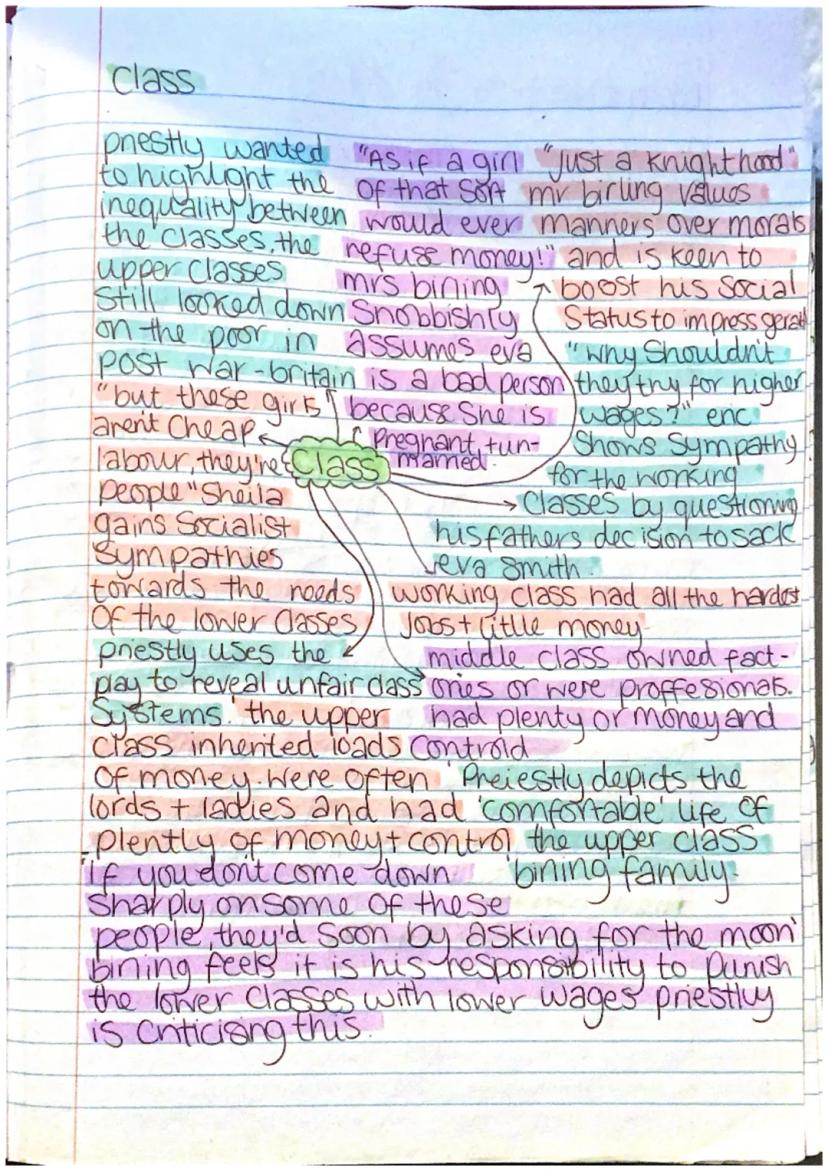 Class
priestly wanted
to highlight the
inequality between
the classes, the
upper classes
still looked down
on the poor in
post war-britain
"As if a girl
of that sort
would ever
refuse money!"
mrs birling
snobbishly
assumes eva
is a bad person
because she is
pregnant + un-
married.
"Just a knighthood"
mr birling values
manners over morals
and is keen to
boost his social
status to impress gerald
"why shouldn't
they try for higher
wages?" eric
shows sympathy
for the working
classes by questioning
his fathers decision to sack
eva smith.
"but these girls
aren't cheap
labour, they're
people" Sheila
gains socialist
sympathies
towards the needs
of the lower classes
Class
working class had all the hardest
jobs + little money
priestly uses the
play to reveal unfair class
systems.
middle class owned fact-
ories or were proffesionals.
had plenty or money and
controld
the upper
class inherited loads
of money. were often
lords + ladies and had
plently of money + control
Preiestly depicts the
'comfortable' life of
the upper class
birling family.
'if you don't come down
sharply on some of these
people, they'd soon by asking for the moon'
birling feels it is his responsibility to punish
the lower classes with lower wages priestly
is criticising this.